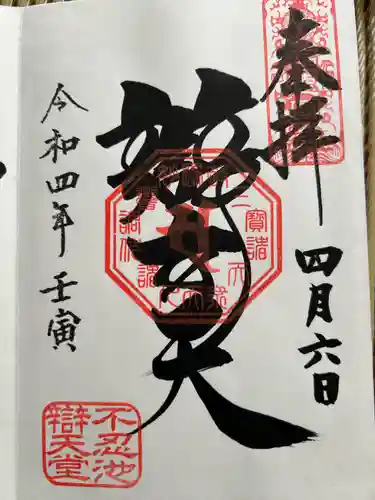 奉拝
四月六日
辯才天
令和四年 壬寅
不忍池
辯天堂